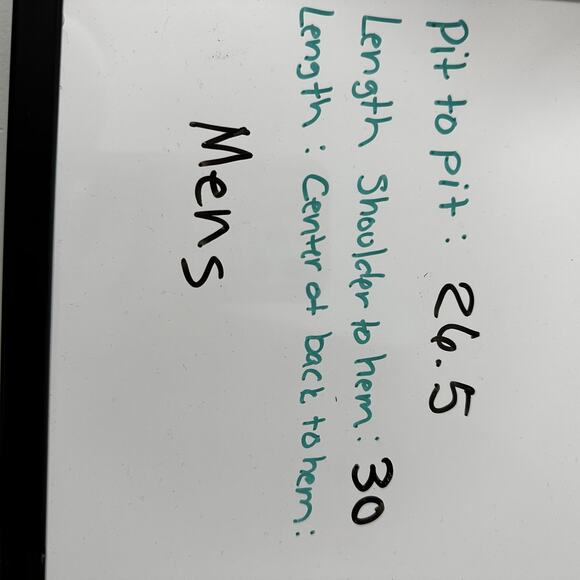 Pit to pit: 26.5
Length Shoulder to hem: 30
Length: Center of back to hem:
Mens